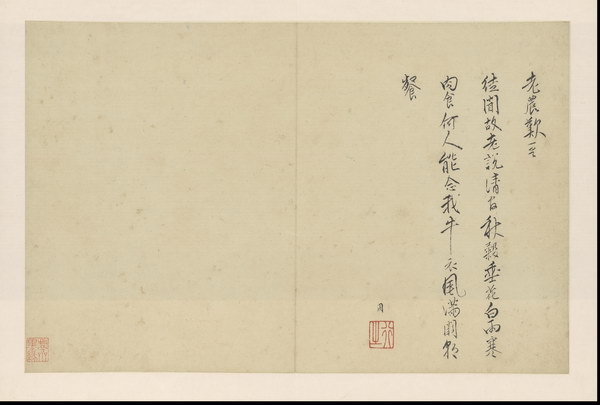 老農歎
往聞故老說清官秋穀垂花白雨寒
肉食何人能念我牛衣風滿朝
餐
月
行之